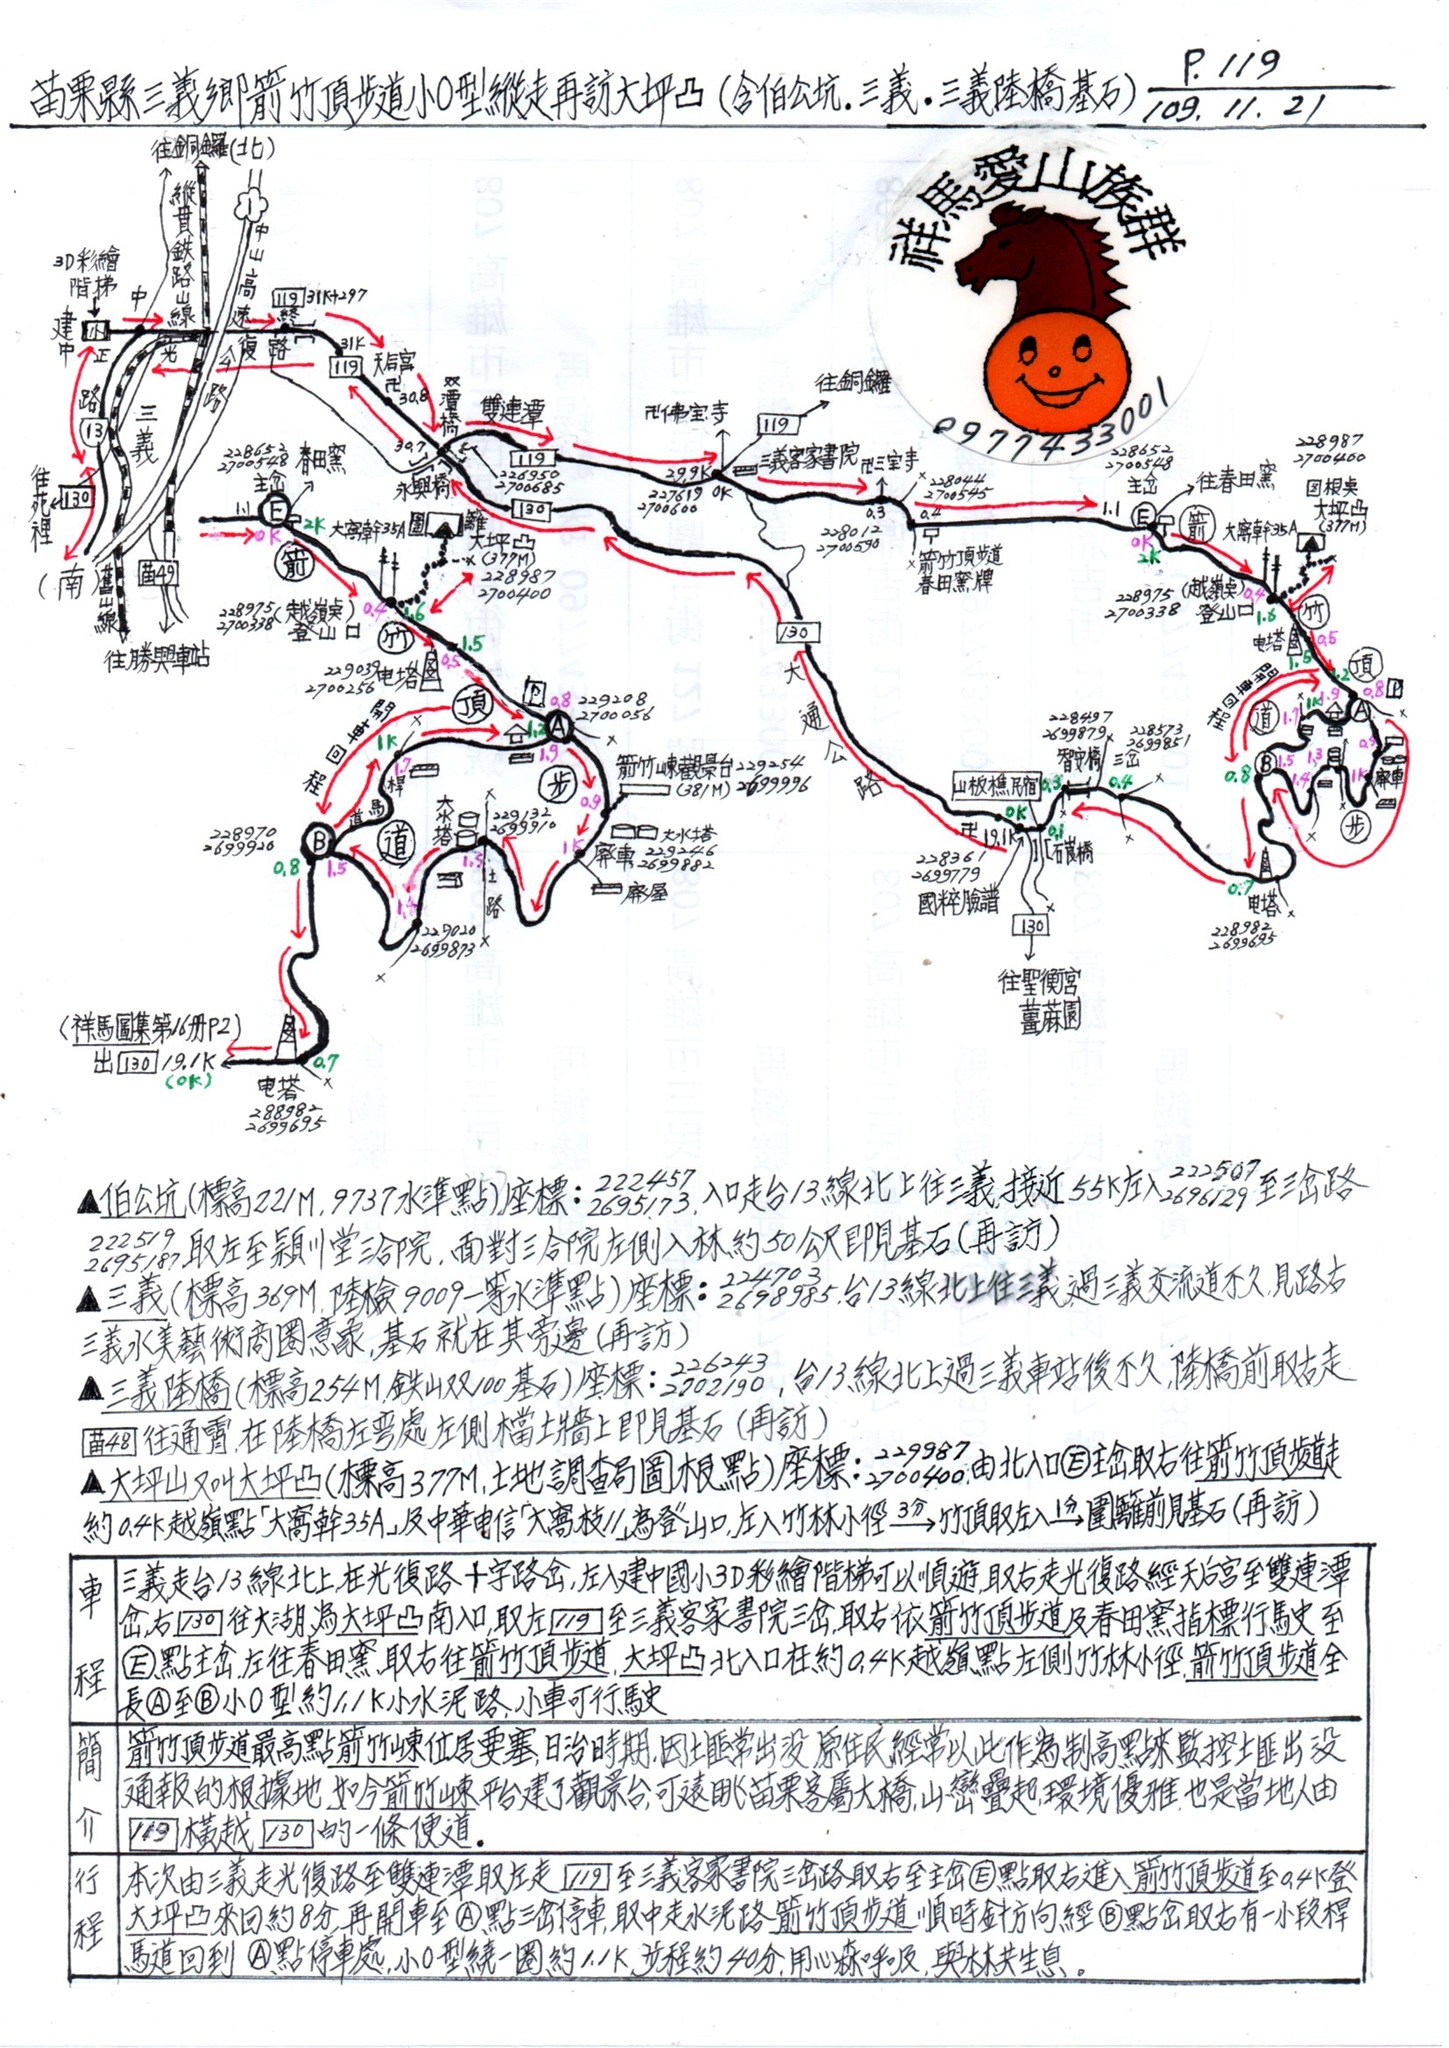 苗栗縣三義鄉箭竹頂步道小O型縱走再訪大坪凸(含伯公坑.三義.三義陸橋基石)
P.119
109.11.21
祥馬愛山族群
0977433001
往銅鑼(北)
縱貫鉄路山線
中山高速路
1
3D彩繪
階梯
建中
小
中正路
13
光復路
119
終
31K+297
31K
119
天后宮
卍
30.8
雙潭橋
雙連潭
30.7
永興橋
119
226950
2700685
130
三義
往苑裡
130
(南)
舊山線
苗49
往勝興車站
228652
2700548
主岔
春田窯
1.1
E
0K
2K
箭
大窩幹35A
圍籬
大坪凸
(377M)
228987
2700400
228975(越嶺點)
2700338 登山口
0.4
1.6
竹
229039
2700256
电塔
0.5
1.5
頂
P
0.8
229208
2700056
A
1.2
1.9
開車回程
1K
1.7
桿
馬
道
步
0.9
箭竹崠觀景台229254
(381M) 2699996
大水塔
229246
2699882
1K
廢車
廢屋
228970
2699920
B
0.8
1.5
道
水塔
229132
2699910
1.3
土路
1.4
229020
2699873
(祥馬圖集第16册P2)
出 130 19.1K
(0K)
0.7
电塔
288982
2699695
卍佛宝寺
119
往銅鑼
29.9K
0K
227619
2700600
三義客家書院
卍三宝寺
0.3
228012
2700590
228044
2700545
0.4
箭竹頂步道
春田窯牌
1.1
228652
2700548
主岔
E
0K
2K
往春田窯
箭
大窩幹35A
228987
2700400
図根點
大坪凸
(377M)
228975(越嶺點)
2700338 登山口
0.4
1.6
竹
电塔
0.5
1.5
頂
1.2
1.9
0.8
P
A
開車回程
道
1.7
1K
0.9
B
0.8
1.5
1.3
1.4
1K
廢車
步
130
大通公路
228497
2699879
智安橋
228573
2699851
三岔
山板樵民宿
0K
0.3
0.4
卍
19.1K
0.1
石崀橋
228361
2699779
國粹臉譜
130
往聖衡宮
薑蔴園
0.7
电塔
228982
2699695
▲伯公坑(標高221M,9737水準點)座標:222457 2695173,入口走台13線北上往三義,接近55K左入222507 2696129至三岔路
222519 2695187取左至潁川堂三合院,面對三合院左側入林約50公尺即見基石(再訪)
▲三義(標高369M,陸檢9009一等水準點)座標:224703 2698985,台13線北上往三義,過三義交流道不久,見路右
三義水美藝術商圈意象,基石就在其旁邊(再訪)
▲三義陸橋(標高254M,鉄山双100基石)座標:226243 2702190,台13線北上過三義車站後不久,陸橋前取右走
苗48往通霄,在陸橋左彎處左側檔土牆上即見基石(再訪)
▲大坪山又叫大坪凸(標高377M,土地調查局圖根點)座標:229987 2700400,由北入口E主岔取右往箭竹頂步道走
約0.4K越嶺點「大窩幹35A」及中華电信「大窩枝11」為登山口,左入竹林小徑3分→竹頂取左入1分→圍籬前見基石(再訪)
車程
三義走台13線北上,在光復路十字路岔,左入建中國小3D彩繪階梯可以順遊,取右走光復路經天后宮至雙連潭
岔,右130往大湖,為大坪凸南入口,取左119至三義客家書院三岔,取右依箭竹頂步道及春田窯指標行駛至
E點主岔,左往春田窯,取右往箭竹頂步道,大坪凸北入口在約0.4K越嶺點左側竹林小徑,箭竹頂步道全
長A至B小O型約1.1K小水泥路,小車可行駛
簡介
箭竹頂步道最高點箭竹崠位居要塞,日治時期,因土匪常出没,原住民經常以此作為制高點來監控土匪出没
通報的根據地,如今箭竹崠平台建了觀景台,可遠眺苗栗客屬大橋,山巒疊起,環境優雅,也是當地人由
119橫越130的一條便道.
行程
本次由三義走光復路至雙連潭取左走119至三義客家書院三岔路取右至主岔E點取右進入箭竹頂步道至0.4K登
大坪凸來回約8分,再開車至A點三岔停車,取中走水泥路箭竹頂步道順時針方向經B點岔取右有一小段桿
馬道回到A點停車處,小O型繞一圈約1.1K,步程約40分,用心森呼吸,與林共生息.